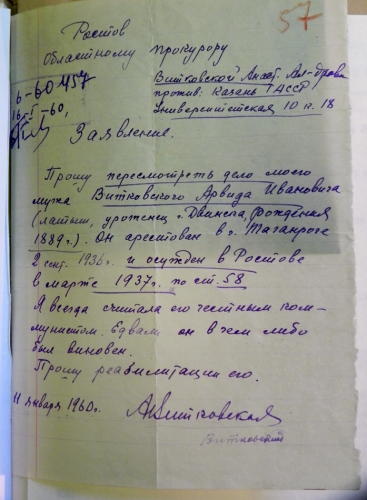 57
Ростов
Областному прокурору
6-60457
16-5-60,
Витковской Анаст. Ал-дровн
прожив: Казань ТАССР
Университетская 10 к. 18
Заявление.
Прошу пересмотреть дело моего
мужа Витковского Арвида Ивановича
(латыш, уроженец г. Двинска, рождения
1889 г.). Он арестован в г. Таганроге
2 сент. 1936 г. и осужден в Ростове
в марте 1937 г. по ст. 58
Я всегда считала его честным ком-
мунистом. Едвали он в чем либо
был виновен.
Прошу реабилитации его.
11 января 1960 г.
АВитковская
Витковский